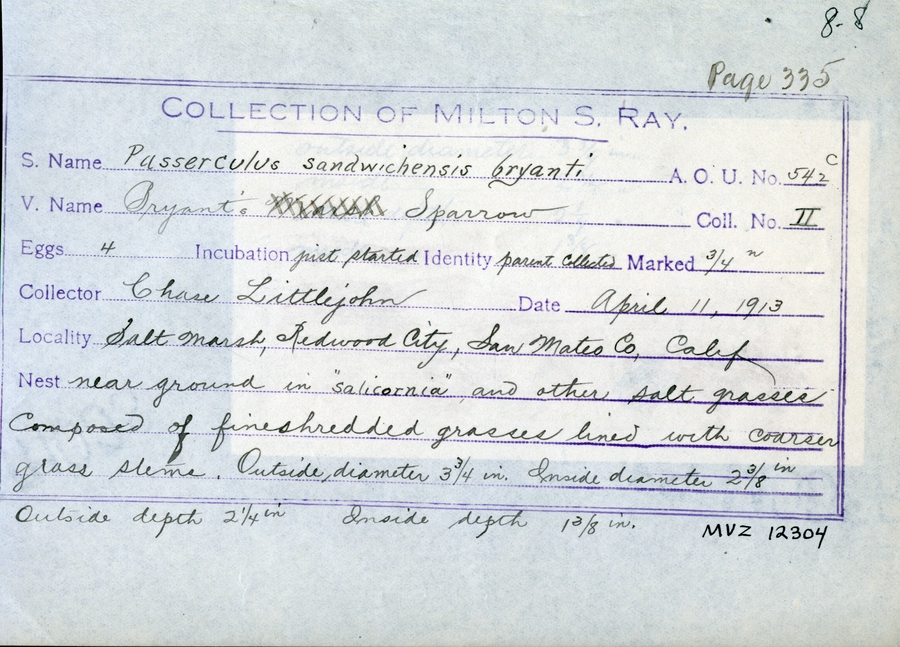 8-8
Page 335
COLLECTION OF MILTON S. RAY.
S. Name Passerculus sandwichensis bryanti A. O. U. No. 542c
V. Name Bryant's Sparrow Coll. No. II
Eggs 4 Incubation just started Identity parent collected Marked 3/4 n
Collector Chase Littlejohn Date April 11, 1913
Locality Salt marsh, Redwood City, San Mateo Co, Calif
Nest near ground in "salicornia" and other salt grasses
Composed of fineshredded grasses lined with coarser
grass stems. Outside diameter 3 3/4 in. Inside diameter 2 3/8 in
Outside depth 2 1/4 in Inside depth 1 3/8 in.
MVZ 12304